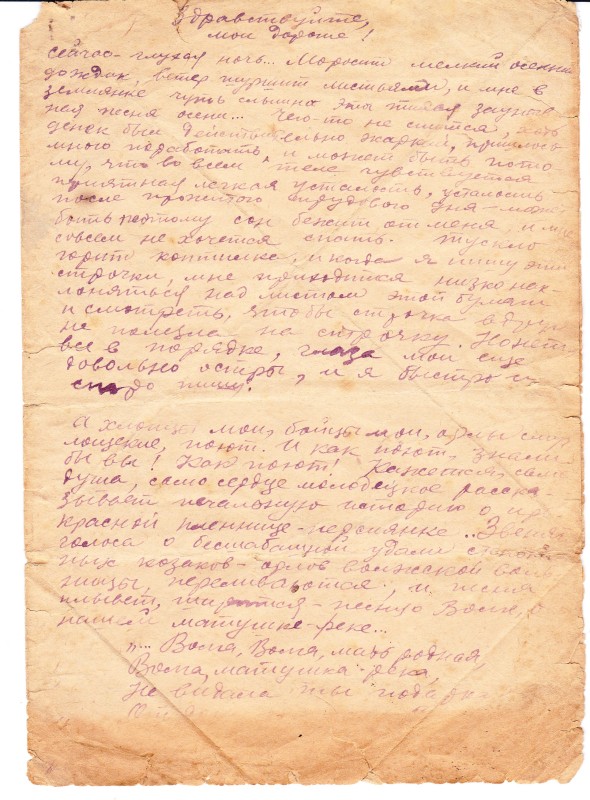 Здравствуйте,
мои дорогие!
Сейчас – глухая ночь... Моросит мелкий осенний
дождик, ветер шуршит листьями, и мне в
землянке чуть слышна эта тихая зауныв-
ная песня осени... Чего-то не спится, хоть
денек был действительно жаркий, пришлось
много поработать, и может быть пото
му, что во всем теле чувствуется
приятная легкая усталость, усталость
после прожитого трудового дня – может
быть поэтому сон бежит от меня и мне
совсем не хочется спать. Тускло
горит коптилка, и когда я пишу эти
строчки, мне приходится низко нак-
лоняться над листом этой бумаги
и смотреть, чтобы строчка
не полезла на строчку. Но
все в порядке, глаза мои еще
довольно остры, и я быстро и
пишу.
А хлопцы мои, бойцы мои, орлы
поют. И как поют, знали
бы вы! Как поют! Кажется, сама
душа, само сердце молодецкое расска
зывает печальную историю о пре
красной пленнице-персиянке.. Звенят
голоса о бесшабашной удали
казаков – орлов волжской воль
ницы, переливаются, и песня
плывет, – песня о Волге, о
нашей матушке-реке...
"... Волга, Волга, мать родная,
Волга, матушка-река,
Не видала ты подарка